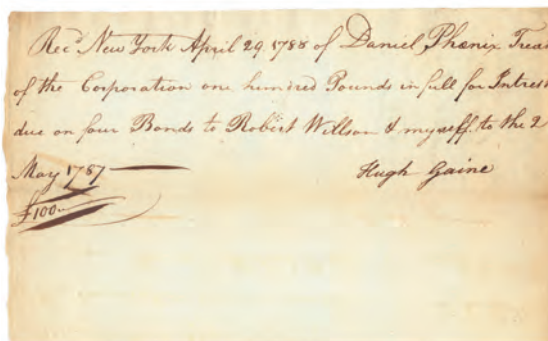 Rec.d New York April 29. 1788 of Daniel Phœnix Treas
of the Corporation one hundred Pounds in full for Intrest
due on four Bonds to Robert Willson & myself. to the 2
May 1787
Hugh Gaine
£100